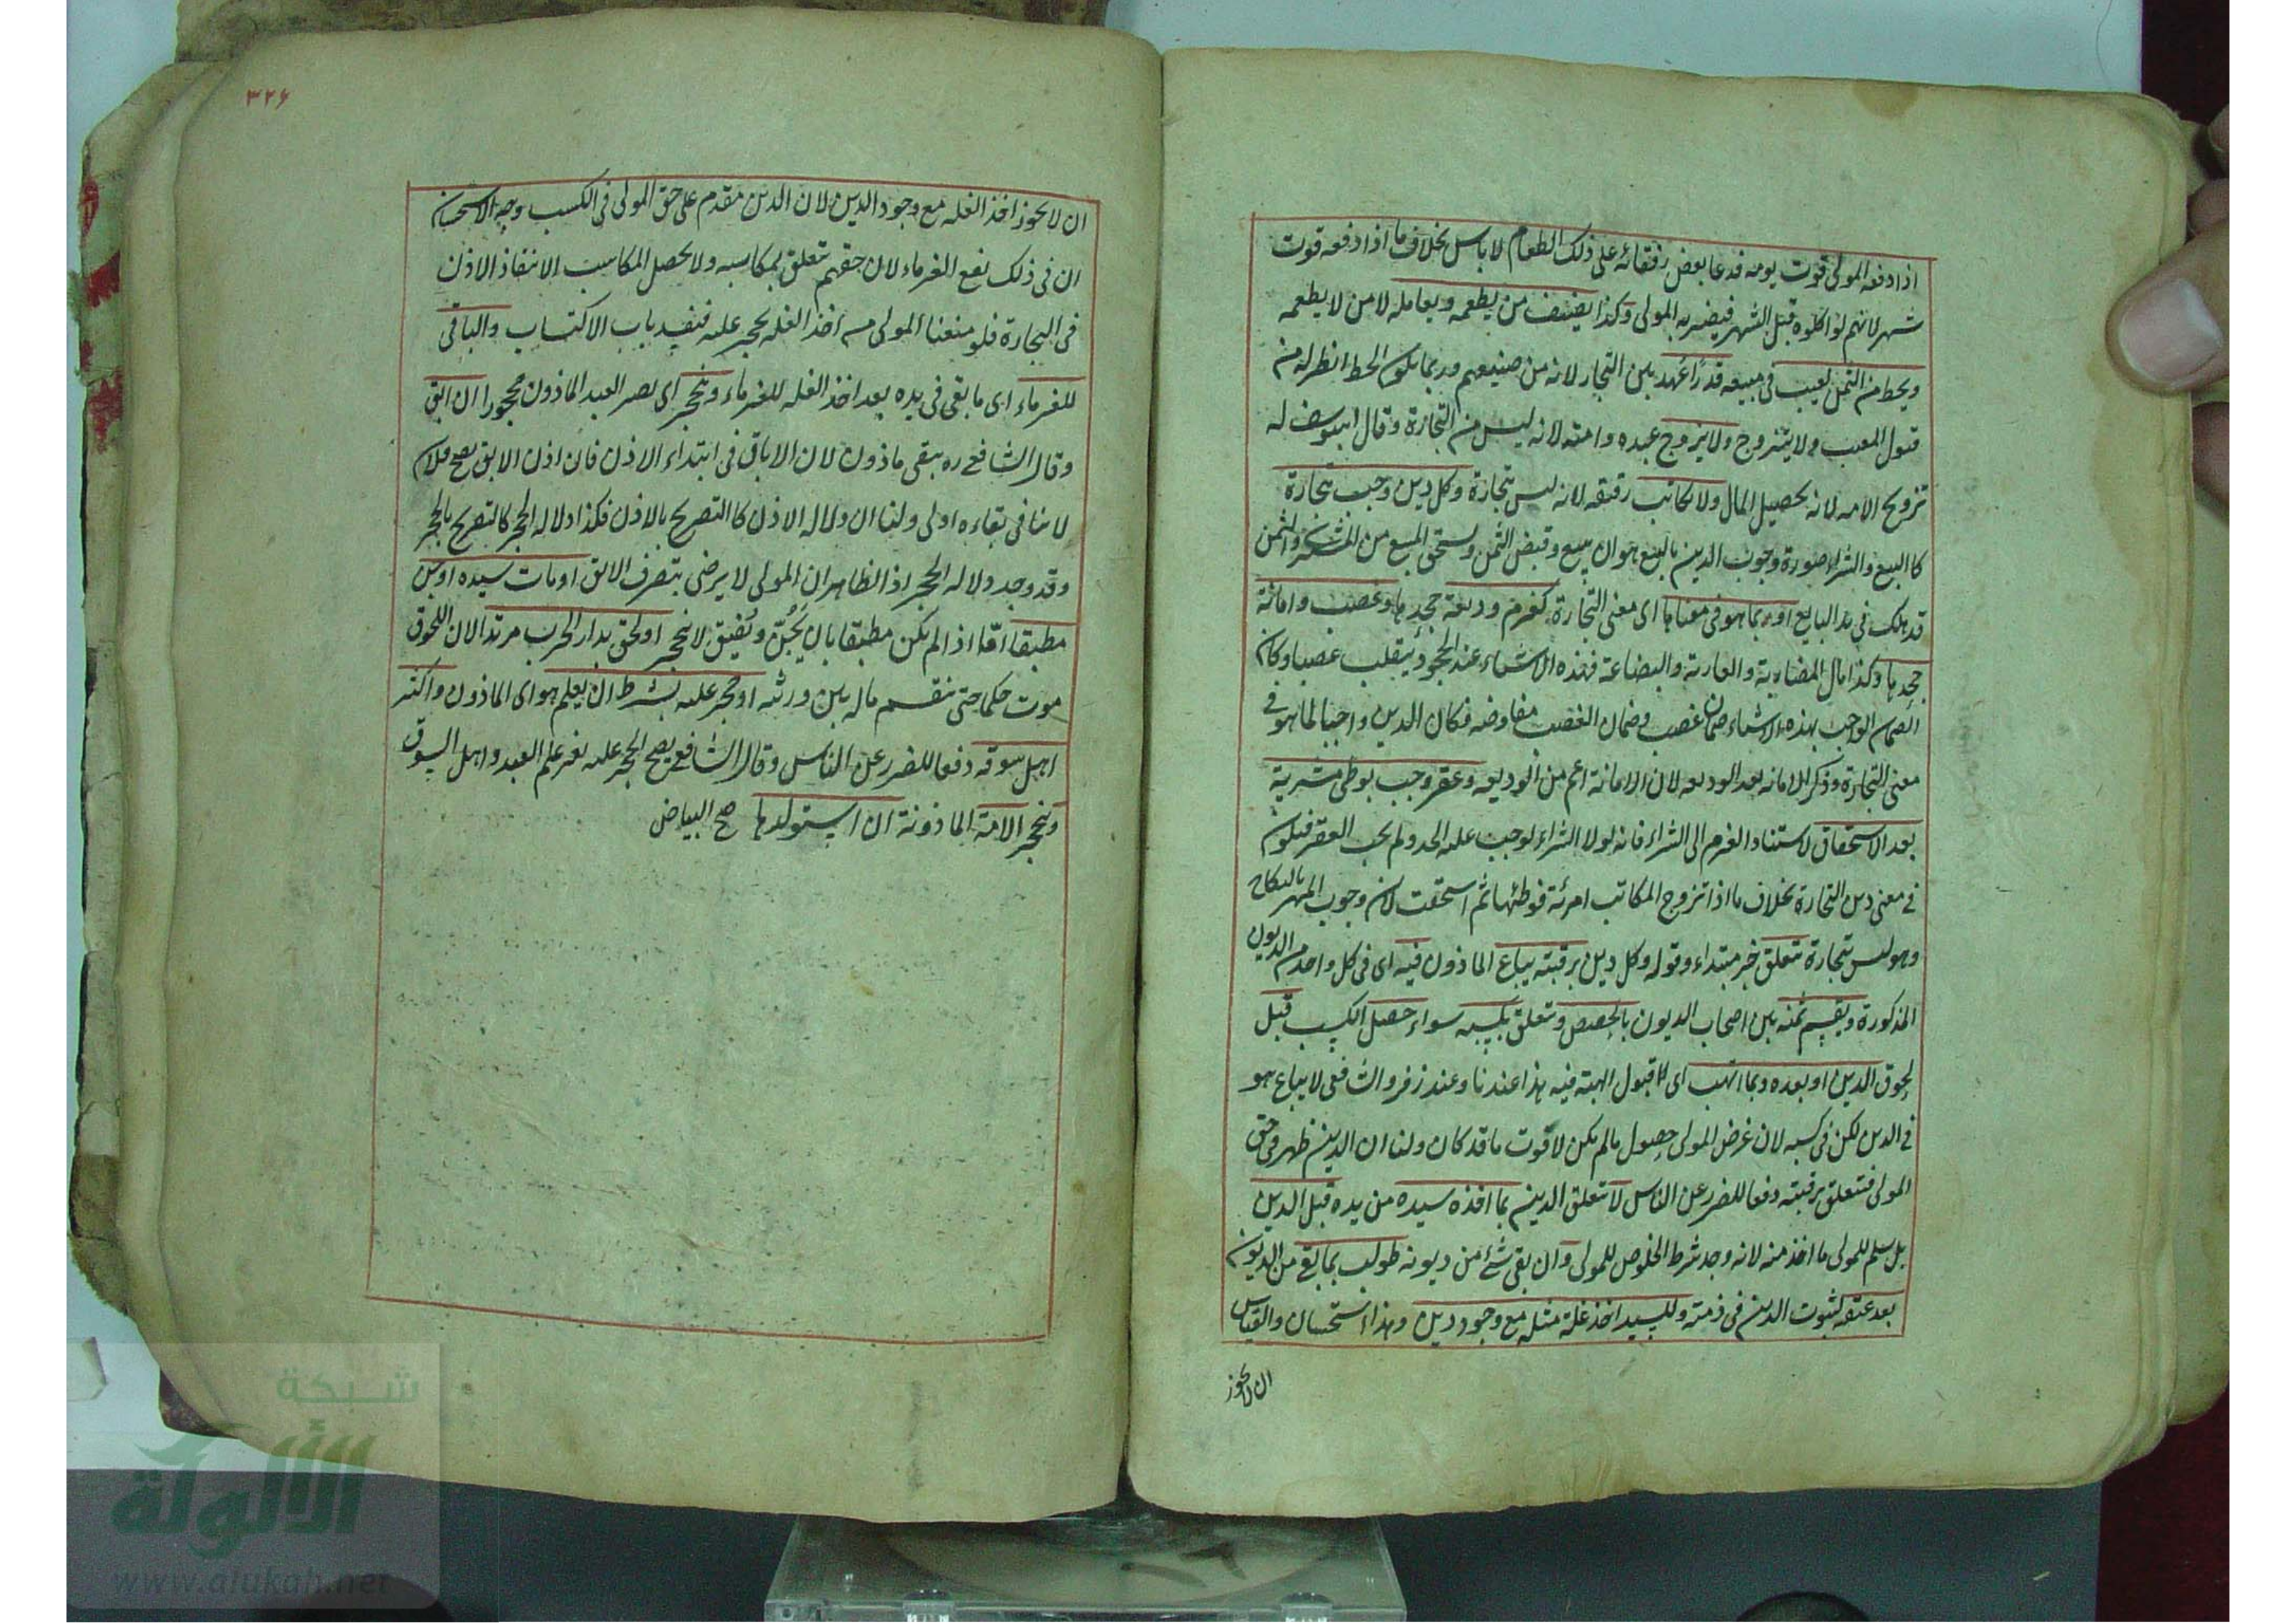 اذا دفعه المولى قوت يومه فدعا بعض رفقائه على ذلك الطعام لا باس بخلاف ما اذا دفعه قوت
شهر لانهم لو اكلوه قبل الشهر فيضر به المولى وكذا يضيف من يطعمه ويعامله لا من لا يطعمه
ويحط من الثمن لعيب في مبيعه قدرًا عُهد بين التجار لانه من صنيعهم وربما يكون الحط انظر له من
قبول المعيب ولا يتزوج ولا يزوج عبده وامته لانه ليس من التجارة وقال ابيوسف له
تزويج الامه لانه تحصيل المال ولا يكاتب رقيقه لانه ليس بتجارة وكل دين وجب بتجارة
كالبيع والشراء صورة وجوب الدين بالبيع هو ان يبيع وقبض الثمن ويستحق المبيع من المشترى والثمن
قد هلك في يد البايع او بما هو في معناها اى معنى التجارة كغرم وديعة جحدها وغصب وامانة
جحدها وكذا مال المضاربة والعارية والبضاعة فهذه الاشياء عند الجحود ينقلب غصبا وكان
الضمان الواجب بهذه الاشياء ضمان غصب وضمان الغصب مفاوضه فكان الدين واجبا لما هو في
معنى التجارة وذكر الامانه بعد الوديعه لان الامانة اعم من الوديعه وعقر وجب بوطى مشرية
بعد الاستحقاق لاستناد الغرم الى الشراء فانه لولا الشراء لوجب عليه الحد ولم يجب العقر فيكون
في معنى دين التجارة بخلاف ما اذا تزوج المكاتب امرئة فوطئها ثم استحقت لان وجوب المهر بالنكاح
وهو ليس بتجارة يتعلق خبر مبتداء وقوله وكل دين برقبته يباع الماذون فيه اى في كل واحد من الديون
المذكورة ويقسم ثمنه بين اصحاب الديون بالحصص ويتعلق بكسبه سواء حصل الكسب قبل
لحوق الدين او بعده وبما اتهب اى لا قبول الهبة فيه هذا عندنا وعند زفر والشافعى لا يباع هو
في الدين لكن في كسبه لان غرض المولى حصول ما لم يكن لا فوت ما قد كان ولنا ان الدين ظهر في حق
المولى فيتعلق برقبته دفعا للضرر عن الناس لا يتعلق الدين بما اخذه سيده من يده قبل الدين
بل سلم للمولى ما اخذ منه لانه وجد شرط الخلوص للمولى وان بقى شئ من ديونه طولب بما بقى من الديون
بعد عتقه لثبوت الدين في ذمته وللسيد اخذ غلة مثله مع وجود دين وهذا استحسان والقياس
ان لا يجوز
٣٢٦
ان لا يجوز اخذ الغله مع وجود الدين لان الدين مقدم على حق المولى في الكسب وجه الاستحسان
ان في ذلك نفع الغرماء لان حقهم يتعلق بمكاسبه ولا يحصل المكاسب الا بنفاذ الاذن
في التجارة فلو منعنا المولى من اخذ الغله يحجر عليه فينسد باب الاكتساب والباقي
للغرماء اى ما بقى في يده بعد اخذ الغله للغرماء وينحجر اى يصير العبد الماذون محجورا ان ابق
وقال الشافعى ره يبقى ماذون لان الاباق في ابتداء الاذن فان اذن الابق يصح فلان
لا ينافى بقاءه اولى ولنا ان دلاله الاذن كالتصريح بالاذن فكذا دلاله الحجر كالتصريح بالحجر
وقد وجد دلاله الحجر اذ الظاهر ان المولى لا يرضى بتصرف الابق او مات سيده او جن
مطبقا امّا اذا لم يكن مطبقا بان يُجَنّ ويُفيق لا ينحجر او لحق بدار الحرب مرتدا لان اللحوق
موت حكما حتى ينقسم ماله بين ورثته او حجر عليه بشرط ان يعلم هو اى الماذون واكثر
اهل سوقه دفعا للضرر عن الناس وقال الشافعى يصح الحجر عليه بغير علم العبد واهل السوق
وينحجر الامة الماذونة ان استولدها صح البياض
شبكة
الألوكة
www.alukah.net